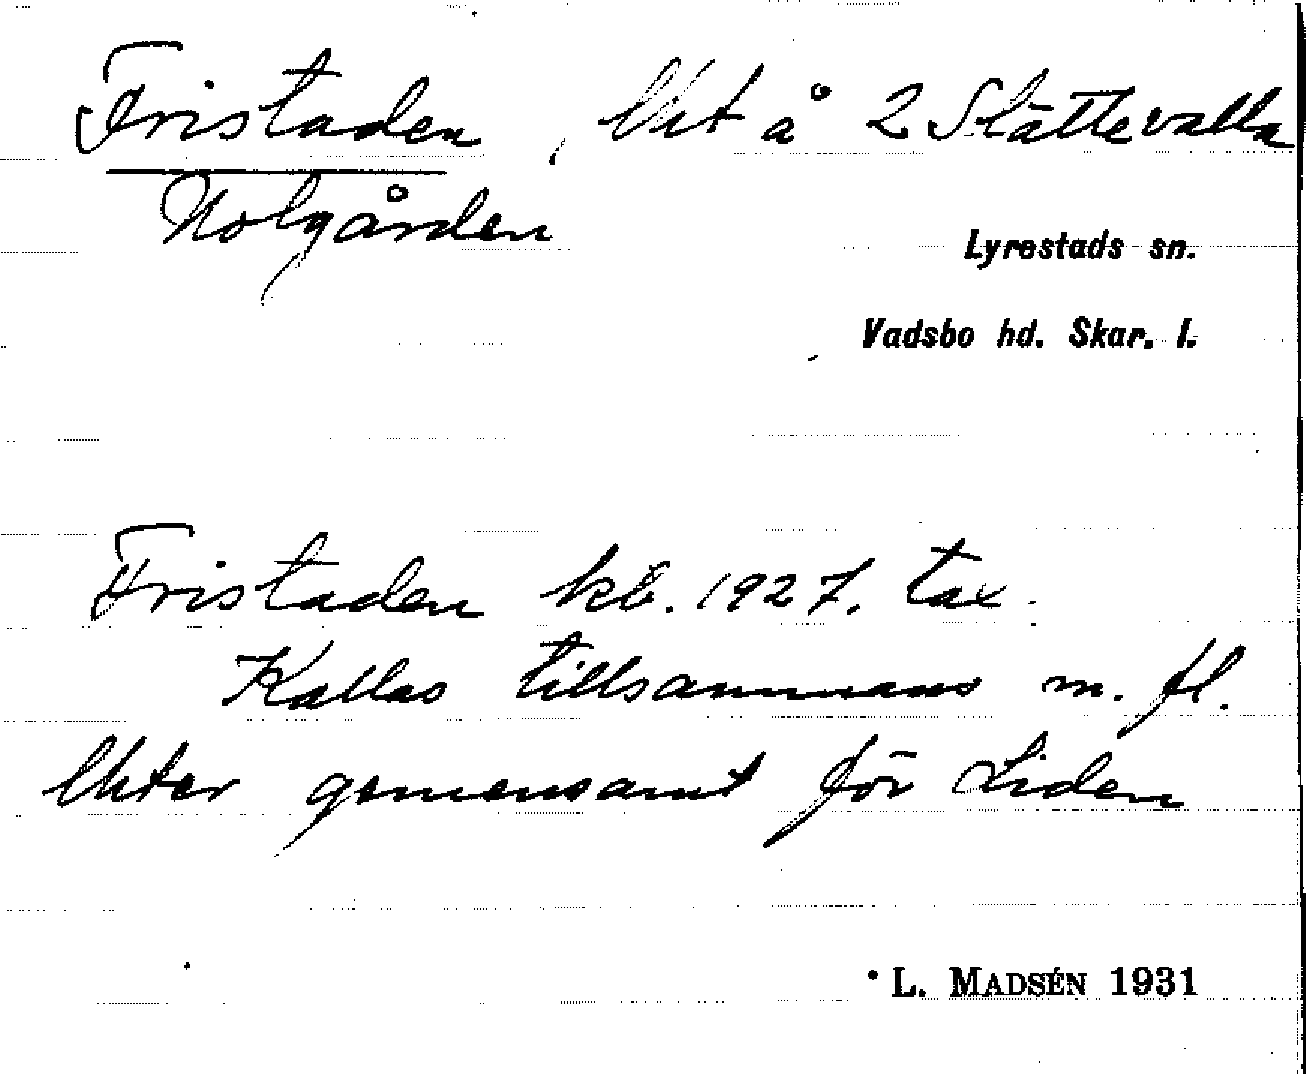 Fristaden, Uct å 2 Slättevalla
Nolgården
Lyrestads sn.
Vadsbo hd. Skar. l.
Fristaden kb. 1927. tax.
Kallas tillsammans m. fl.
Ucter gemensamt för Liden
• L. MADSÉN 1931